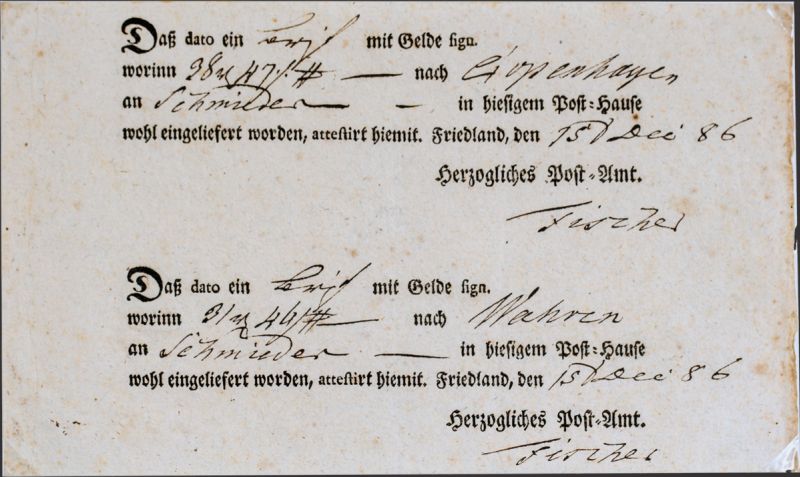 Daß dato ein Brief mit Gelde sign.
worinn 38 47 — nach Copenhagen
an Schmieder — — in hiesigem Post-Hause
wohl eingeliefert worden, attestirt hiemit. Friedland, den 15 Dec 86
Herzogliches Post-Amt.
Fischer
Daß dato ein Brief mit Gelde sign.
worinn 31 — nach Wahren
an Schmieder — in hiesigem Post-Hause
wohl eingeliefert worden, attestirt hiemit. Friedland, den 15 Dec 86
Herzogliches Post-Amt.
Fischer